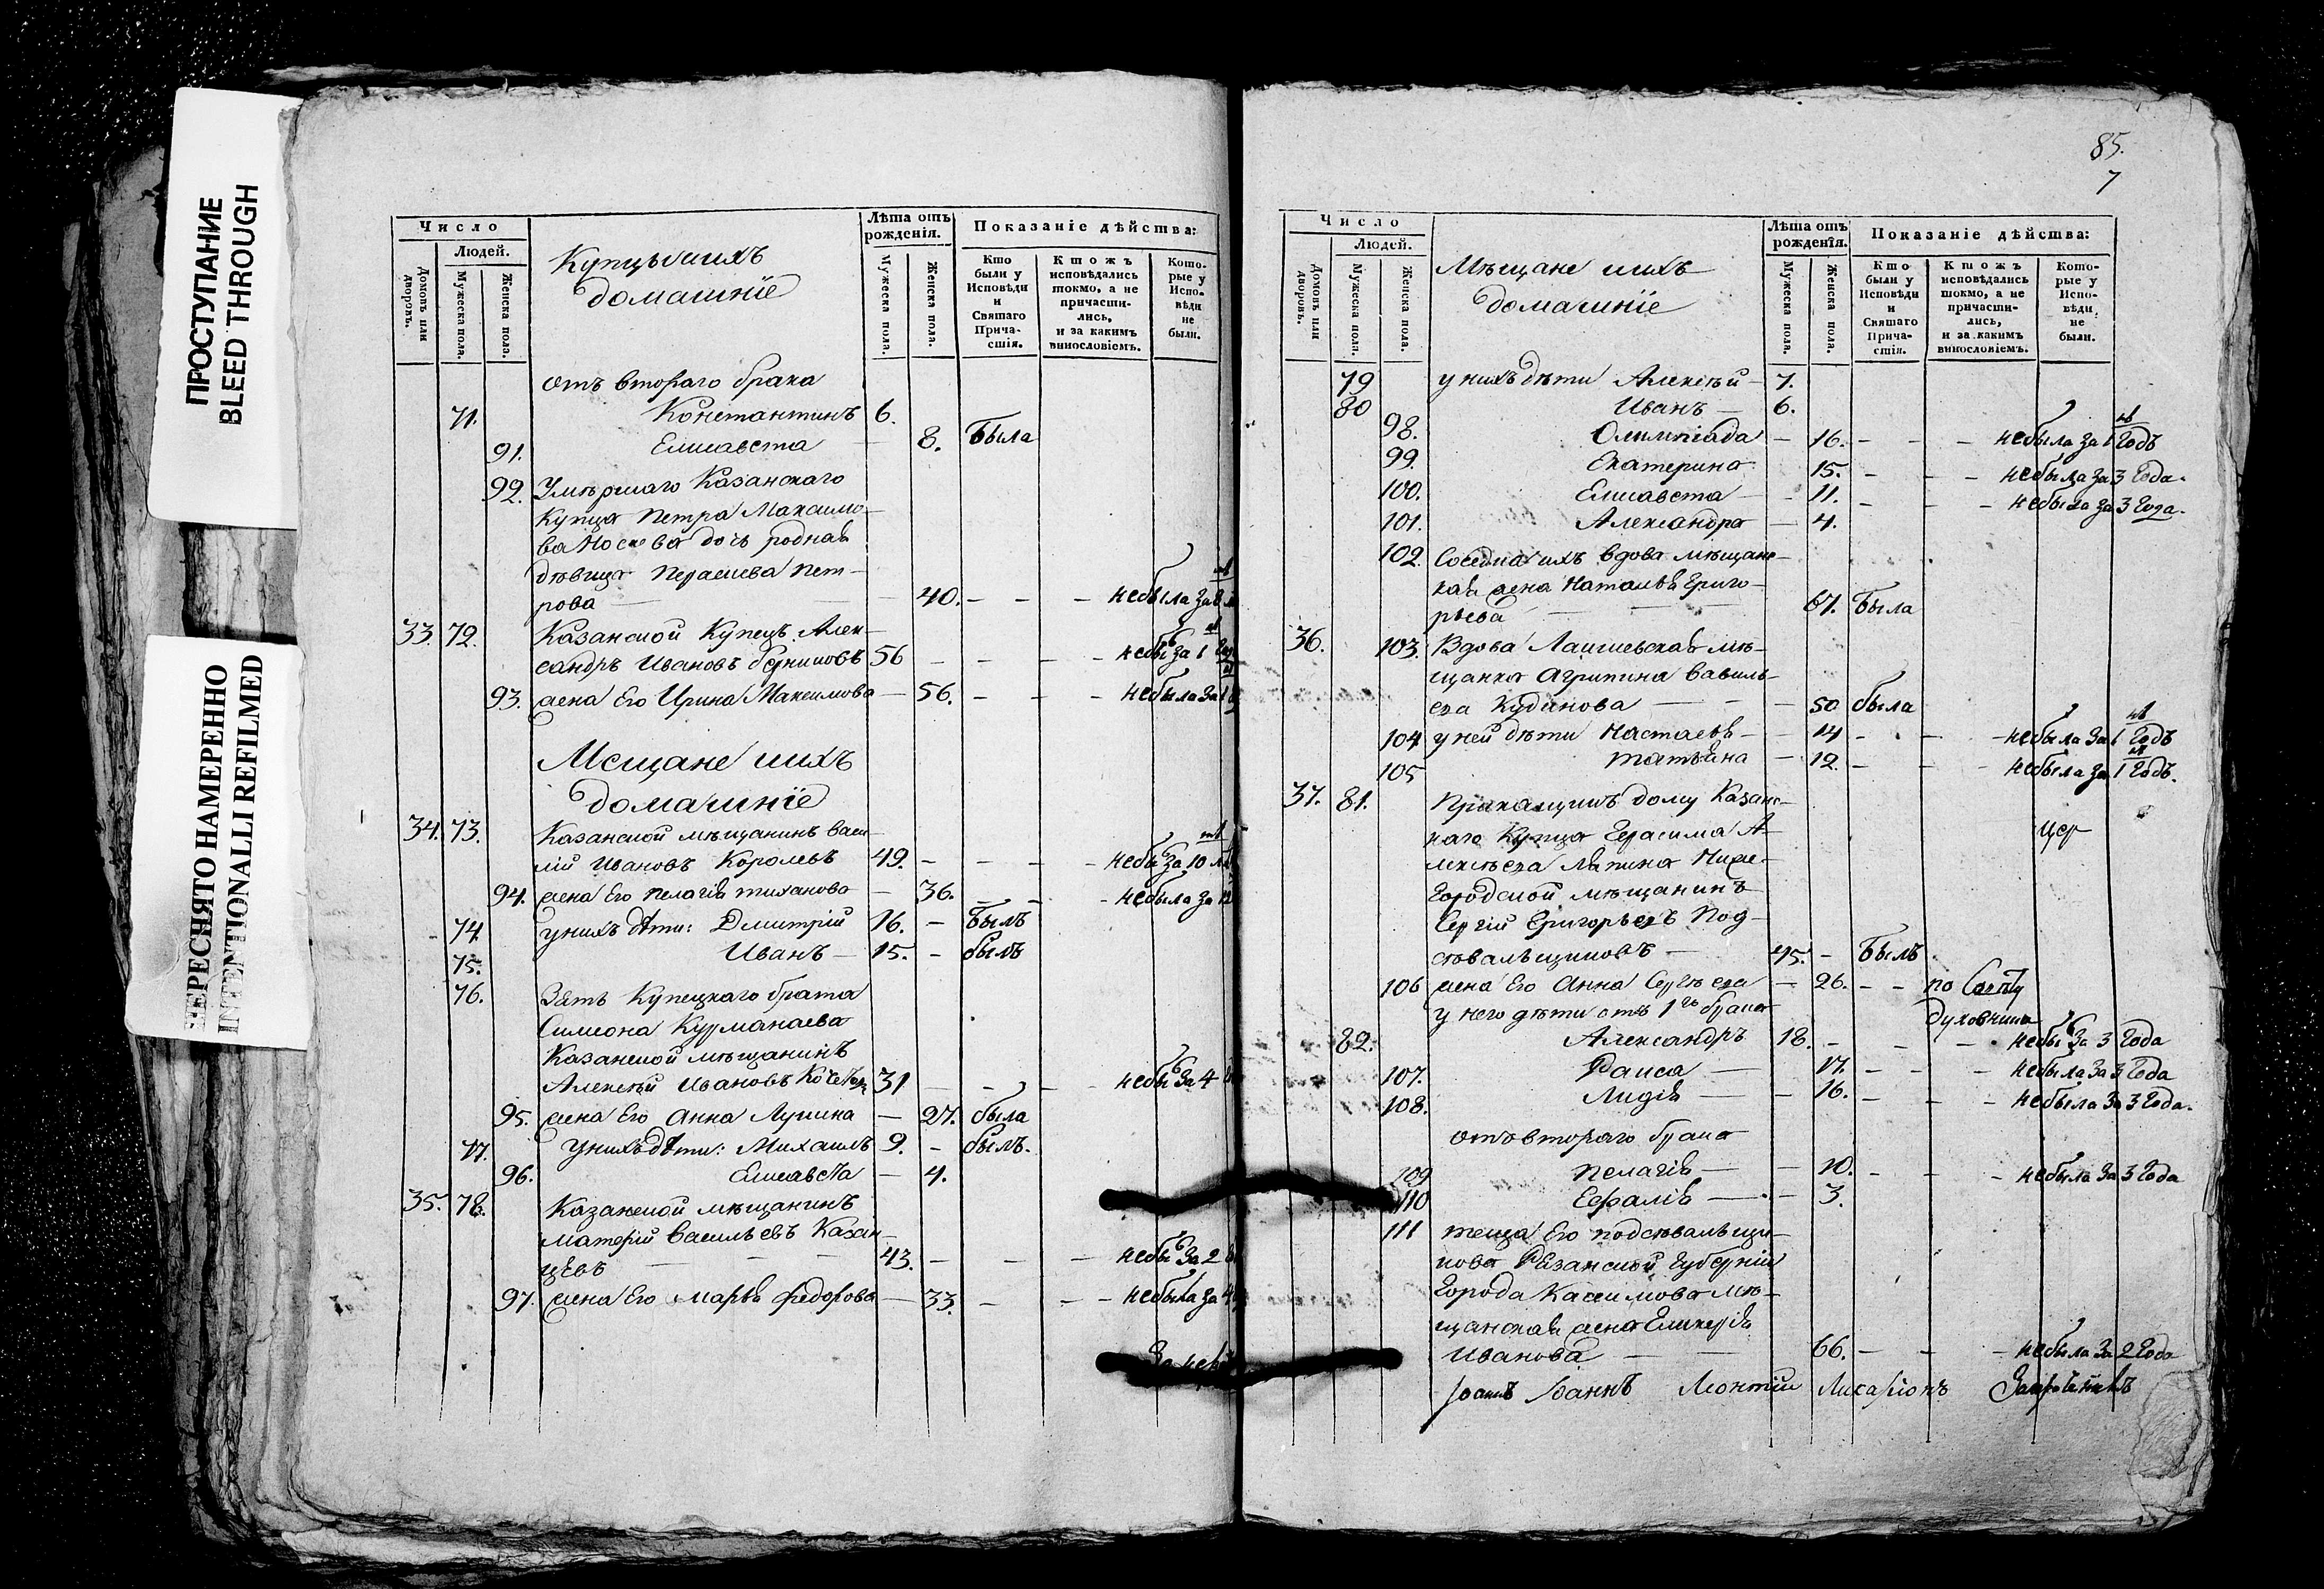 ПРОСТУПАНИЕ
BLEED THROUGH
ПЕРЕСНЯТО НАМЕРЕННО
INTENTIONALLI REFILMED
Число
Людей.
Домовъ или дворовъ.
Мужеска пола.
Женска пола.
Купцы ихъ
домашніе
Лѣта отъ рожденія.
Мужеска пола.
Женска пола.
Показаніе дѣйства:
Кто были у Исповѣди и Святаго Причастія.
Ктожъ исповѣдались токмо, а не причастились, и за какимъ винословіемъ.
Которые у Исповѣди не были.
отъ втораго брака
71. Константинъ 6.
91. Елисавета — 8. Была
92. Умѣршаго Казанскаго
купца Петра Максимо-
ва дочь родная
дѣвица Пет-
рова — 40. — — — небыла за
33. 72. Казанской Купецъ Алек-
сандръ Ивановъ 56 — — — небы за 1
93. жена Его Ирина Максимова — 56. — — — небыла за 1
Мещане ихъ
домашніе
34. 73. Казанской мѣщанинъ Васи-
лій Ивановъ Королевъ 49. — — — небы за 10
94. жена Его Пелагія Тиханова — 36. — — — небыла за
74 унихъ дѣти: Дмитрій 16. — Былъ
75. Иванъ — 15. — былъ
76. Зять Купецкаго брата
Симеона Курманаева
Казанской мѣщанинъ
Алексѣй Ивановъ 31 — — — небы за 4
95. жена Его Анна Лукина — 27. была
77. унихъ дѣти: Михаилъ 9. — былъ.
96. Елисавета — 4.
35. 78. Казанской мѣщанинъ
Матерій Васильевъ Казан-
цевъ — 43. — — — небы за 2
97. жена Его Марья Федорова — 33. — — — небыла за 4
85.
7
Число
Людей.
Домовъ или дворовъ.
Мужеска пола.
Женска пола.
Мѣщане ихъ
домашніе
Лѣта отъ рожденія.
Мужеска пола.
Женска пола.
Показаніе дѣйства:
Кто были у Исповѣди и Святаго Причастія.
Ктожъ исповѣдались шокмо, а не причастились, и за какимъ винословіемъ.
Которые у Исповѣди не были.
79 у нихъ дѣти Алексѣй — 7.
80 Иванъ — 6.
98. Олимпіада — 16. — — — небыла за 1 Годъ
99. Екатерина 15. — — — небыла за 3 Года.
100. Елисавета — 11. — — — небыла за 3 Года.
101. Александра — 4.
102. Соседка ихъ вдова мѣщанс-
кая жена Наталья Григо-
рьева — 67. Была
36. 103. Вдова Лаишевская мѣ-
щанка Агрипина Василь-
ева Кудинова — 50 была
104 у ней дѣти Настасья — 14 — — — небыла за 1 Годъ
105 Татьяна — 12. — — — небыла за 1 Годъ.
37. 81. Прикащикъ дому Казанс-
каго Купца Герасима А-
лексѣева Ляпина Ниже-
Городской мѣщанинъ
Сергій Григорьевъ Под-
сѣвальщиковъ — 45. — Былъ
106 жена Его Анна Сергѣева — 26. — — по Совѣту
духовника
у него дѣти отъ 1го брака
82. Александръ 18. — — — небы за 3 Года
107. Раиса — 17. — — — небыла за 3 Года
108. Лидія — 16. — — — небыла за 3 Года.
отъ втораго брака
109 Пелагія — 10. — — — небыла за 3 Года
110 — 3.
111 теща Его подсѣвальщи-
кова Рязанской Губерніи
Города Касимова мѣ-
щанская жена Гликерія
Иванова — 66. — — — небыла за 2 Года
Іоаннъ